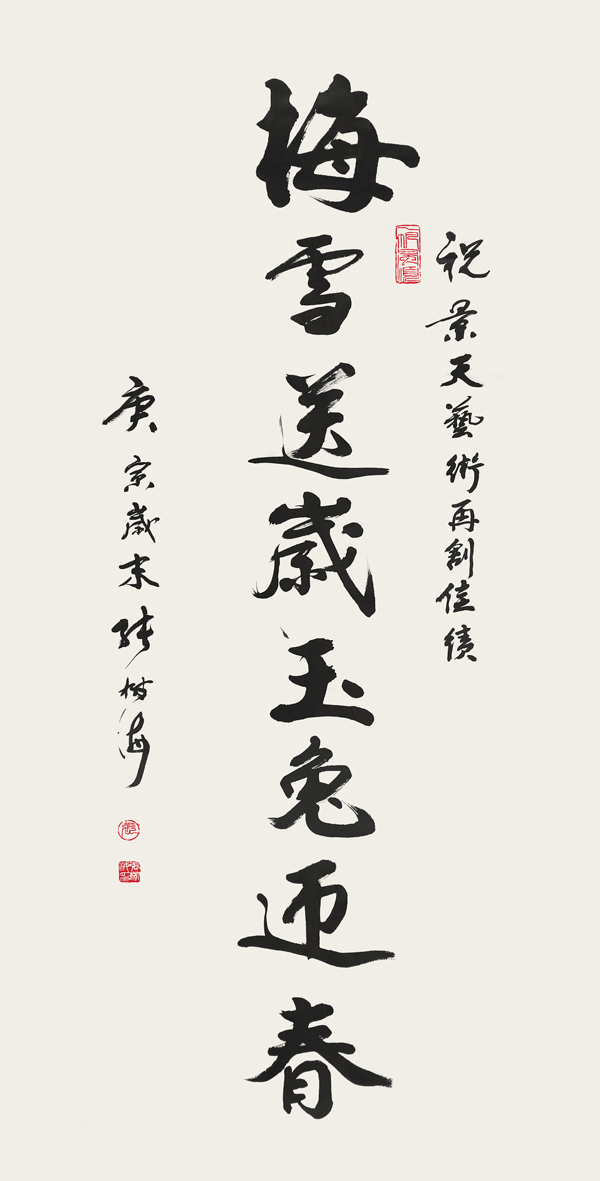 祝景天藝術再創佳績
梅雪送歲玉兔迎春
庚寅歲末张树海